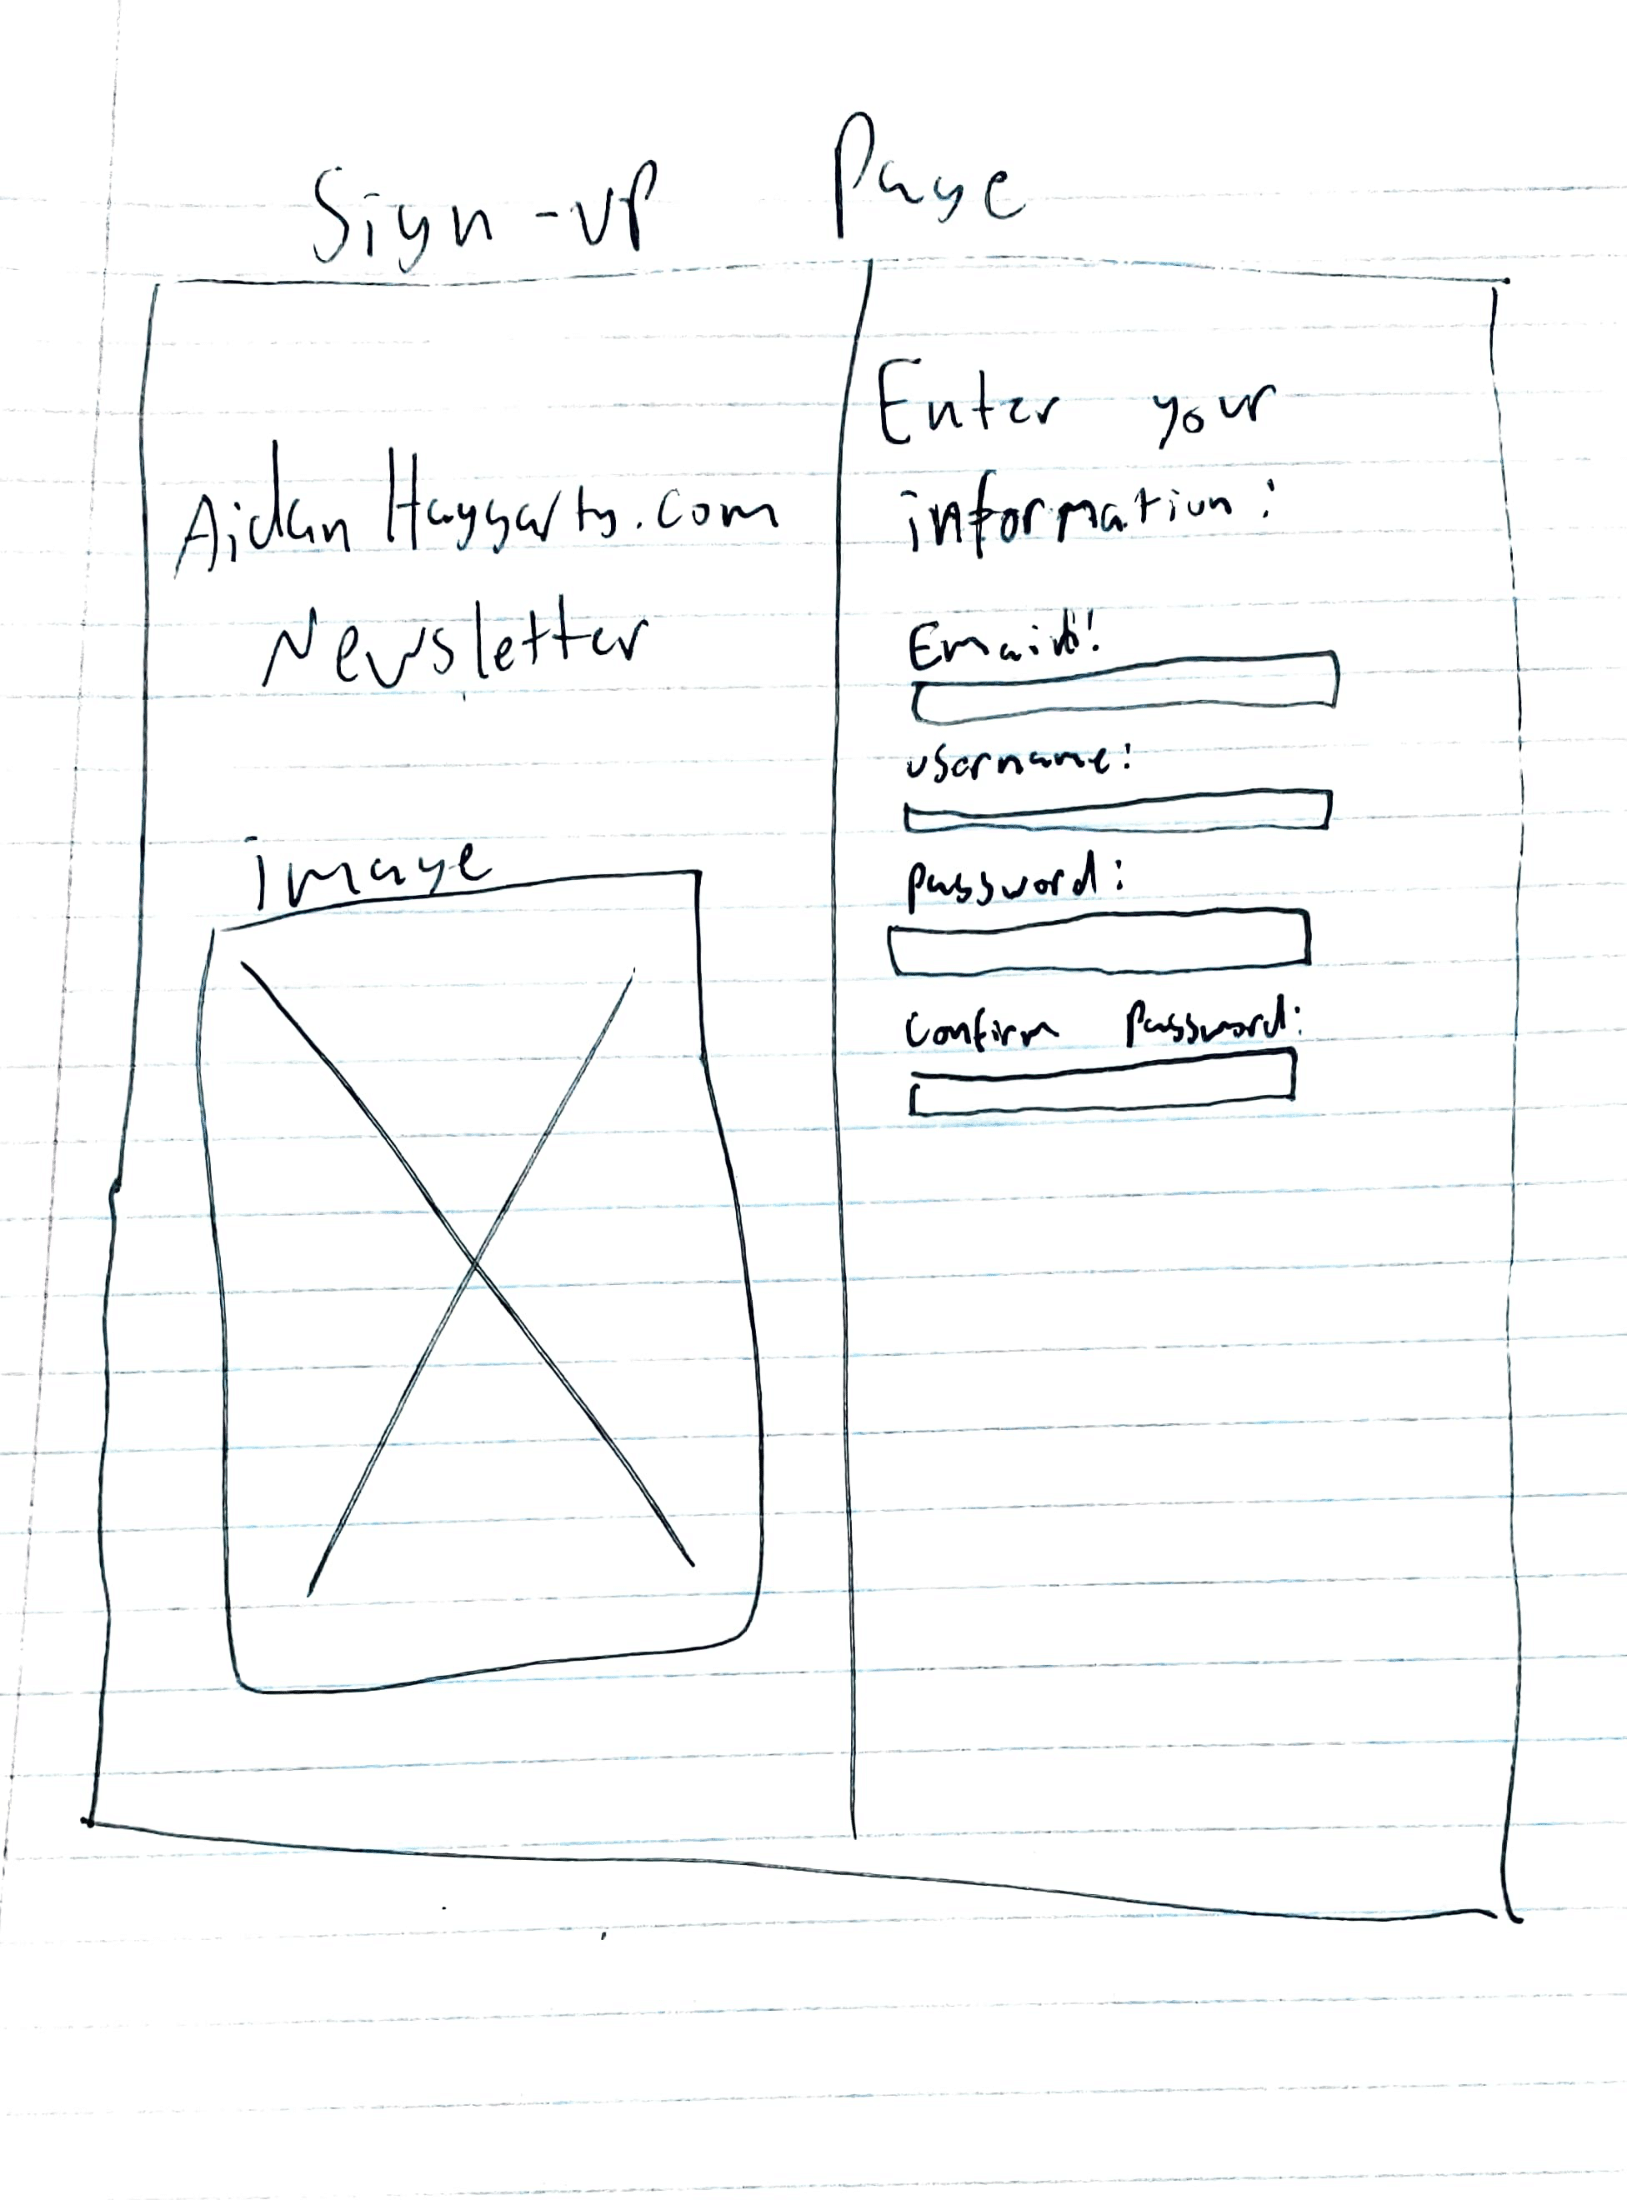 Sign-up Page
AidanHaggarty.com
Newsletter
image
Enter your
information:
Email:
username:
password:
confirm password: